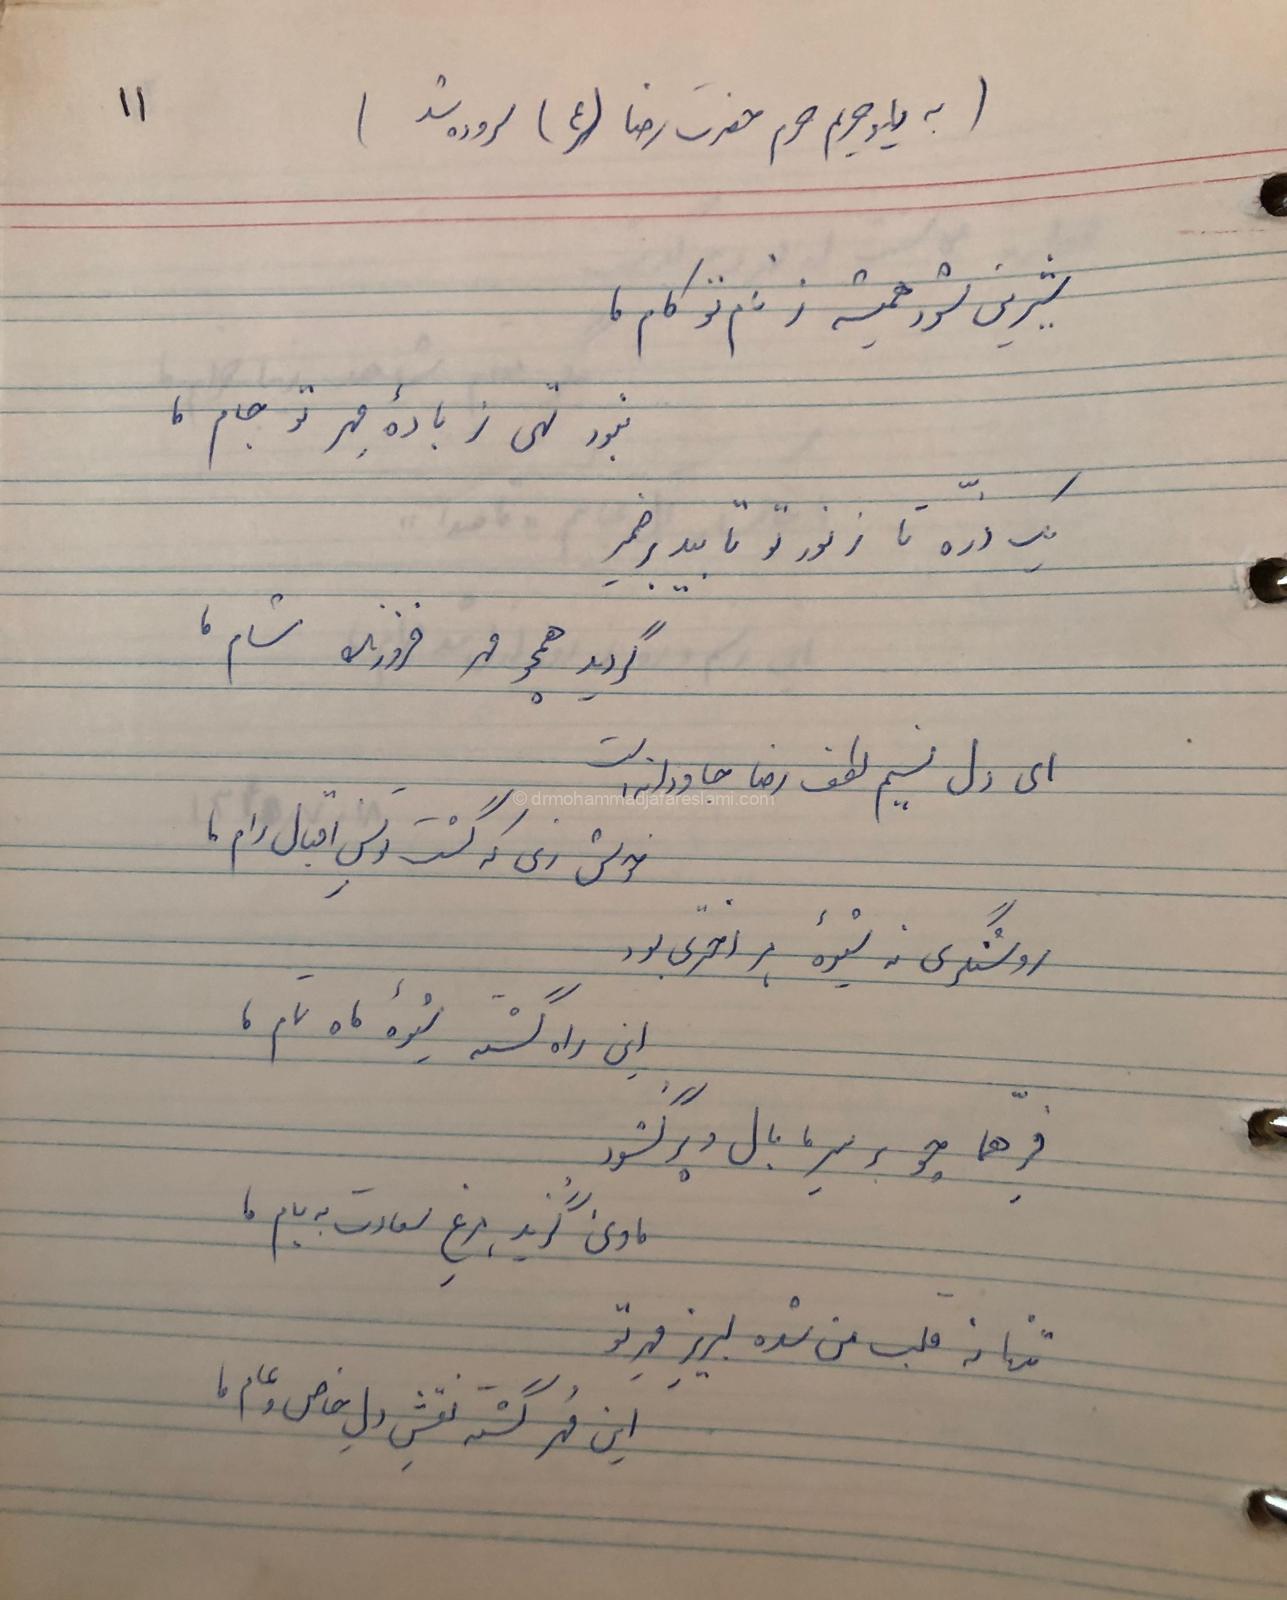 ۱۱
( به یاد حریم حرم حضرت رضا (ع) سروده شد )
شیرین شود همیشه ز نام تو کام ما
نبود تهی ز بادهٔ مِهر تو جام ما
یک ذرّه تا ز نور تو تابید بر ضمیر
گردید همچو مهر فروزنده شام ما
ای دل نسیم لطف رضا جاودانه است
خوش زی که گشت توسنِ اقبال رام ما
© drmohammadjafareslami.com
روشنگری نه شیوهٔ هر اختری بود
این راه گشته شیوهٔ ماه تمام ما
فرِّ هما چو بر سرِ ما بال و پر گشود
ماوی گزید مرغِ سعادت به بام ما
تنها نه قلب من شده لبریزِ مِهرِ تو
این مُهر گشته نقشِ دلِ خاص و عام ما